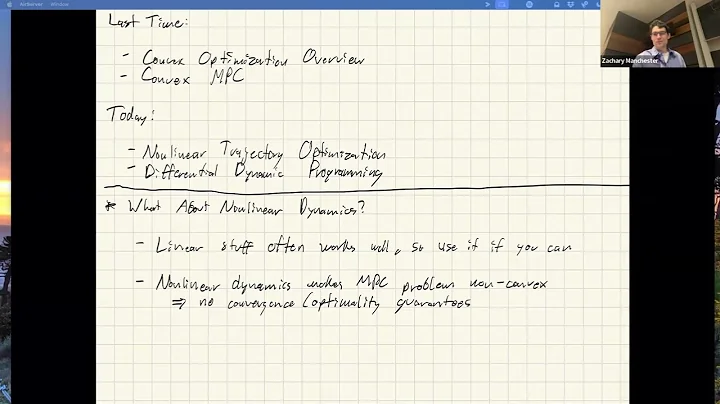 AirServer Window
Last Time:
- Convex Optimization Overview
- Convex MPC
Today:
- Nonlinear Trajectory Optimization
- Differential Dynamic Programming
* What About Nonlinear Dynamics?
- Linear stuff often works well, so use it if you can
- Nonlinear dynamics makes MPC problem non-convex
⇒ no convergence/optimality guarantees
Zachary Manchester